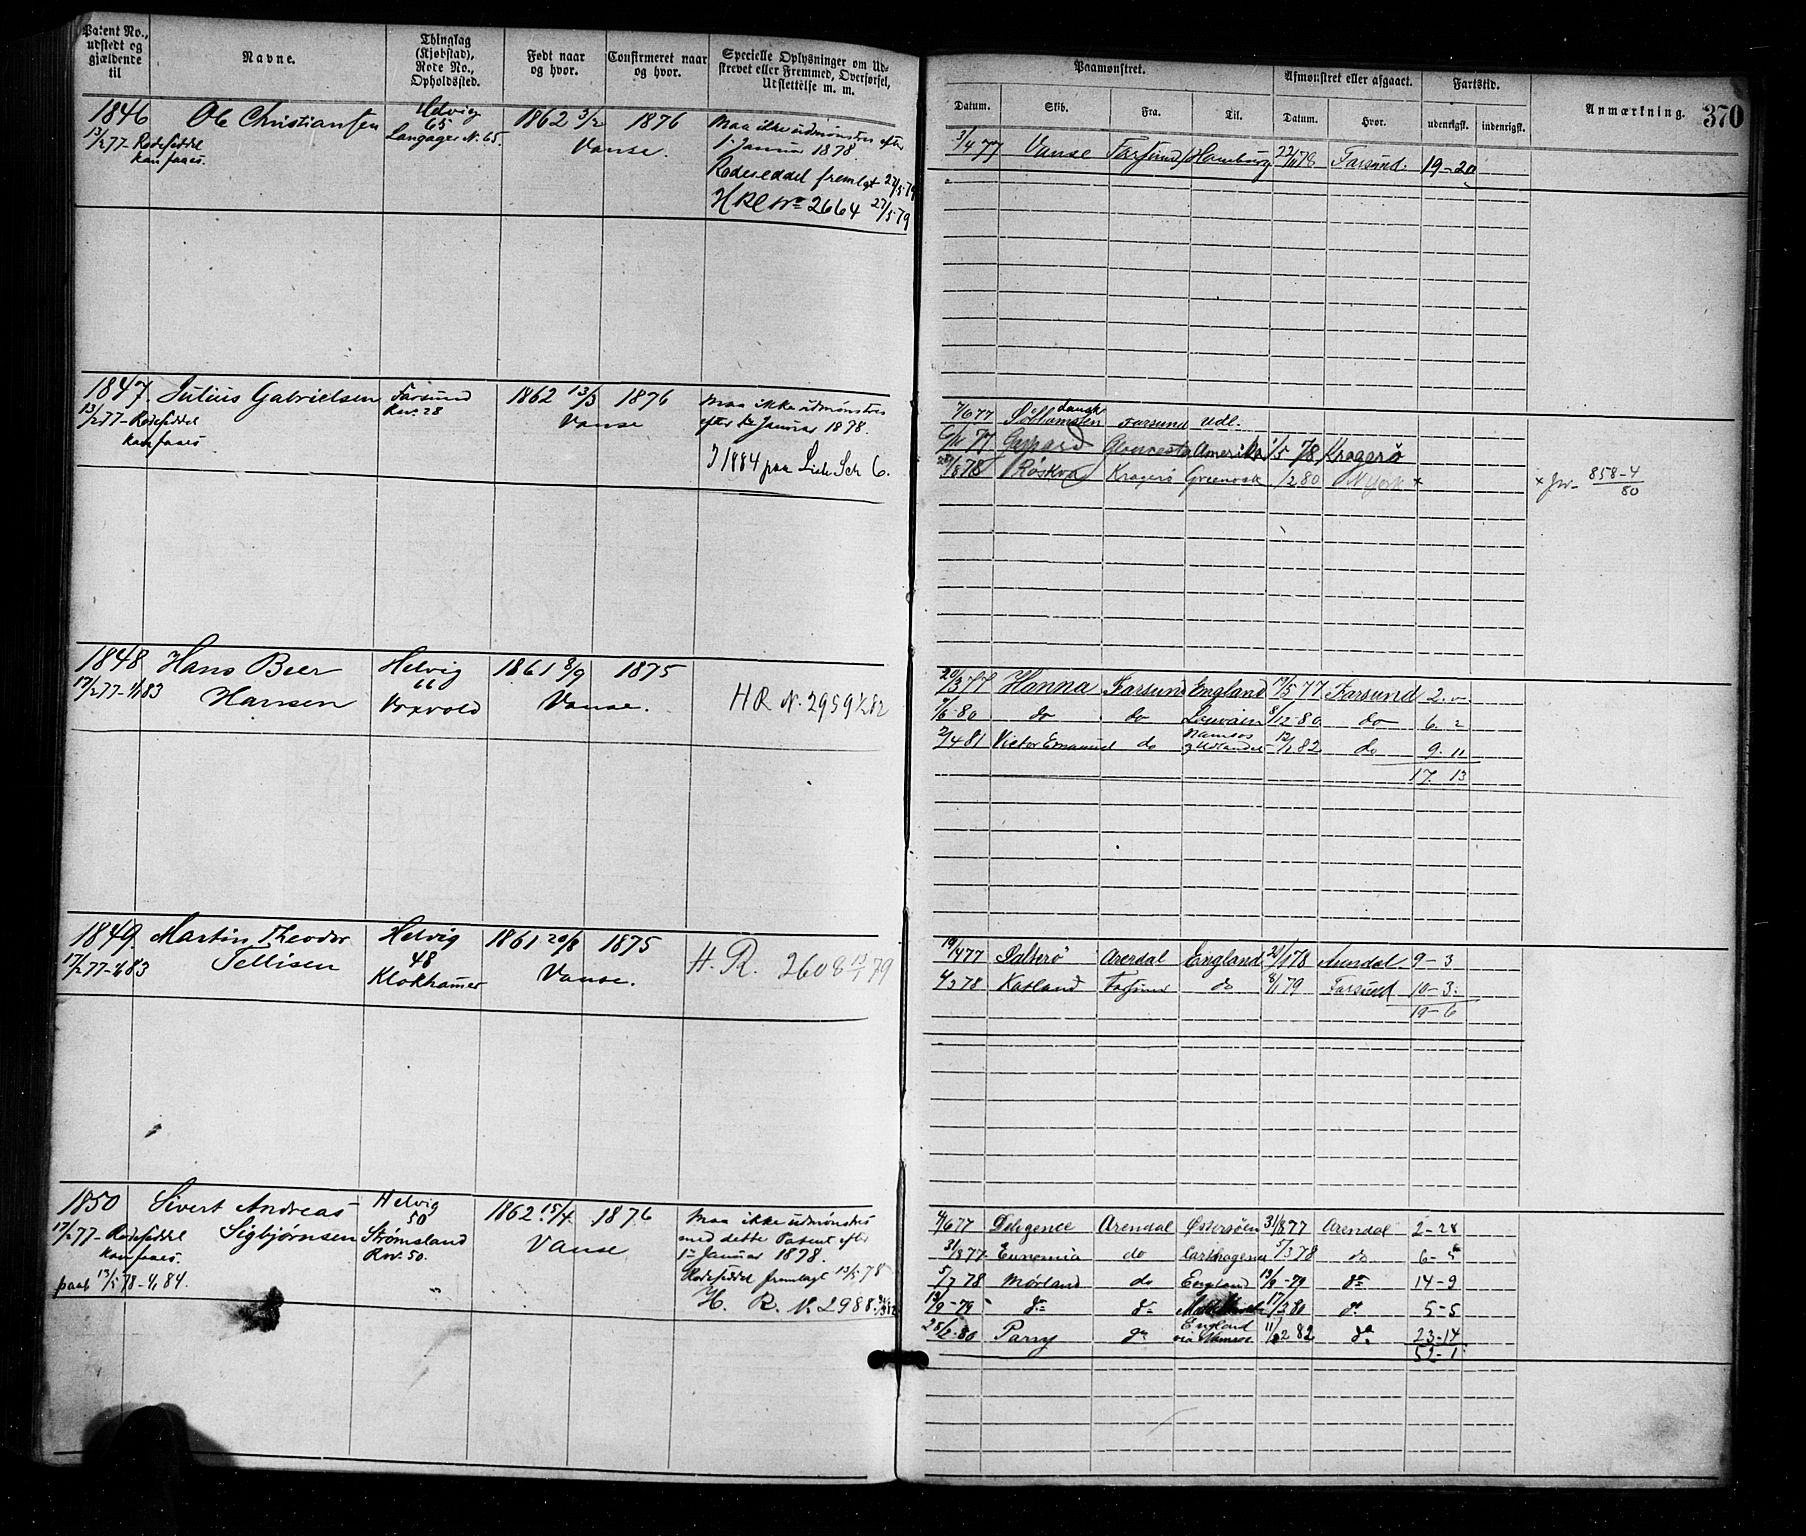 Patent No., udstedt og gjældende til
Navne.
Thinglag (Kjøbstad), Rode No., Opholdssted.
Født naar og hvor.
Confirmeret naar og hvor.
Specielle Oplysninger om Udstrevet eller Fremmed, Overførsel, Udslettelse m. m.
Paamønstret.
Afmønstret eller afgaaet.
Fartstid.
Anmærkning.
370
Datum.
Skib.
Fra.
Til.
Datum.
Hvor.
udenrigst.
indenrigst.
1846 Ole Christiansen Helvig 1862 3/2 1876 Maa ikke udmønstres efter
13/2 77 - Rodeseddel 65 Vanse. 1. Januar 1878
kan faaes. Langager N. 65. Rodeseddel fremlgt 27/5 79
H Rl No 2664 27/5 79
3/4 77 Vanse Farsund Hamburg 22/11 78 Farsund. 19-20
1847. Julius Gabrielsen Farsund 1862 13/3 1876 Maa ikke udmønstres
13/2 77 - Rodeseddel Rov. 28 Vanse efter 1ste Januar 1878.
kan faaes
I 1884 paa Lieb. Sch 6.
7/6 77 dansk Farsund Udl.
77 Gerhard Amerika 1/5 78 Kragerø
78 Røskva Kragerø Greenock 80 N York ×
× fr. 858-4
80
1848 Hans Beer Helvig 1861 8/9 1875
17/2 77 - 1/1 83 Hansen 66 Vanse. H R N. 2959
Voxvold
20/3 77 Hanna Farsund England 17/5 77 Farsund 2. -
7/6 80 do do Louvain 8/12 80 do 6. 2
2/4 81 Victor Emanuel do Namsos 12/1 82 do 9. 11
17. 13
1849. Martin Theodor Helvig 1861 20/8 1875
17/2 77 - 1/1 83 Tellisen 48 Vanse. H. R. 2608 13/1 79
Klokhamer
19/4 77 Dalserö Arendal England 21/1 78 Arendal 9-3
78 Katland Farsund do 8/1 79 Farsund 10-3.
19-6
1850 Sivert Andreas Helvig 1862 15/4 1876 Maa ikke udmønstres
17/2 77 - Rodeseddel Sigbjørnsen 50 Vanse med dette Patent efter
kan faaes. Strømsland 1ste Januar 1878.
paat 13/5 78 - 1/1 84. Rov. 50. Rodeseddel fremlagt 13/5 78
H. R. N. 2988
77 Deligence Arendal Østersøen 31/8 77 Arendal 2-28
31/8 77 Eunomia do Carthagena 5/3 78 do 6-5
5/7 78 Mørland do England 13/9 - 79 do 14-9
13/9 - 79 do do 17/2 80 do 5-5
28/2 - 80 Parry do England via Namsos 11/2 82 do 23-14
52-1